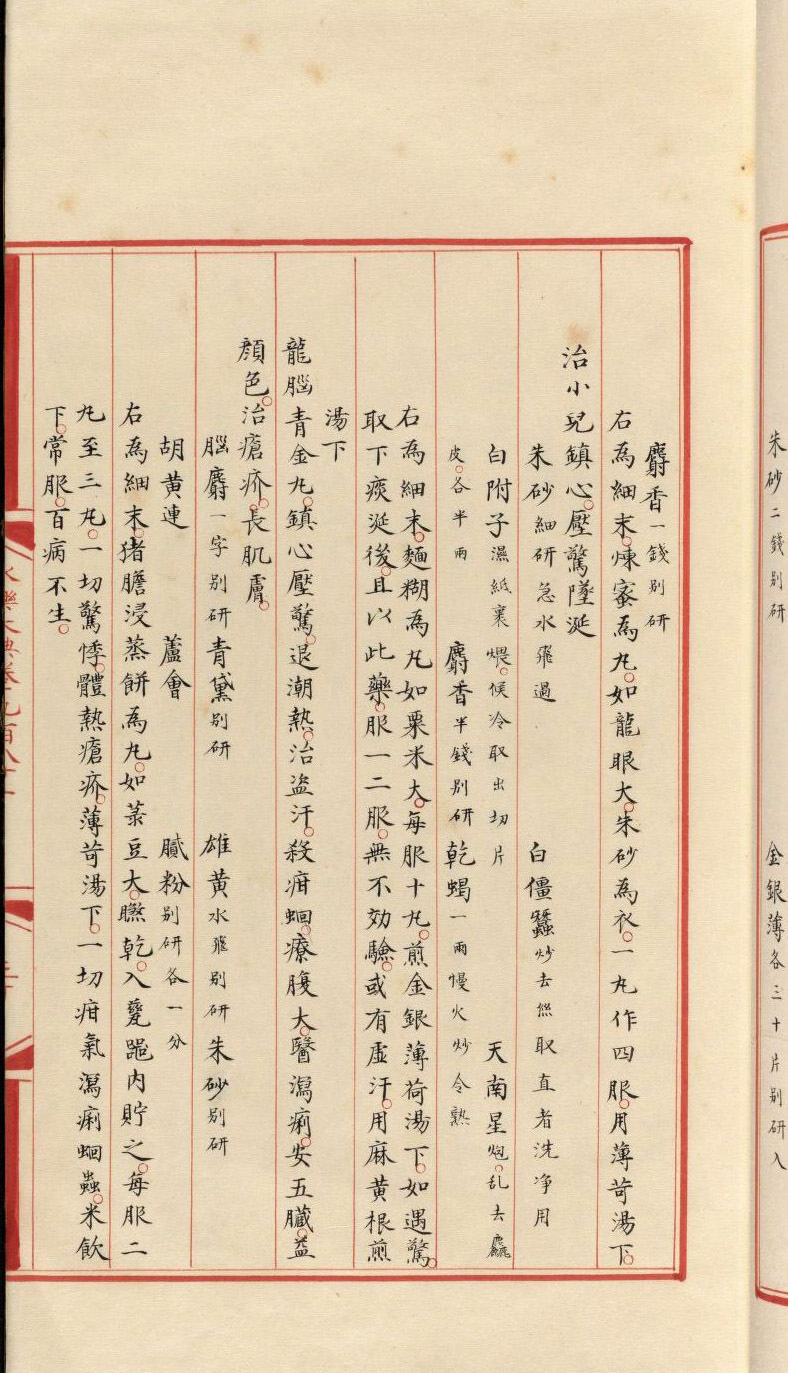 朱砂二錢別研　金銀薄各三十片別研入
麝香一錢別研
右為細末。煉蜜為丸。如龍眼大。朱砂為衣。一丸作四服。用薄荷湯下。
治小兒鎮心。壓驚墜涎
朱砂細研急水飛過　白僵蠶炒去絲取直者洗净用
白附子濕紙裹煨。候冷取出切片　天南星炮。乱去麤
皮。各半兩　麝香半錢別研　乾蝎一兩慢火炒令熟
右為細末。麵糊為丸如粟米大。每服十丸。煎金銀薄荷湯下。如遇驚。
取下痰涎後。且以此藥。服一二服。無不効驗。或有虛汗。用麻黄根煎
湯下
龍腦青金丸。鎮心壓驚。退潮熱。治盗汗。殺疳蛔。療腹大。醫瀉痢。安五臟。益
顔色。治瘡疥。長肌膚。
腦麝一字別研　青黛別研　雄黄水飛別研　朱砂別研
胡黄連　蘆會　膩粉別研各一分
右為細末。猪膽浸蒸餅為丸。如菉豆大。㬠乾。入甆噐内貯之。每服二
丸至三丸。一切驚悸。體熱瘡疥。薄荷湯下。一切疳氣瀉痢蛔蟲。米飲
下。常服。百病不生。